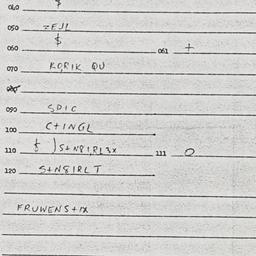 040 $
050 =EJL
060 $ 061 +
070 KQRIK QU
080
090 SPIC
100 C+INGL
110 $ )S+N81RL3X 111 O
120 S+N81RLT
FRUWENS+MX